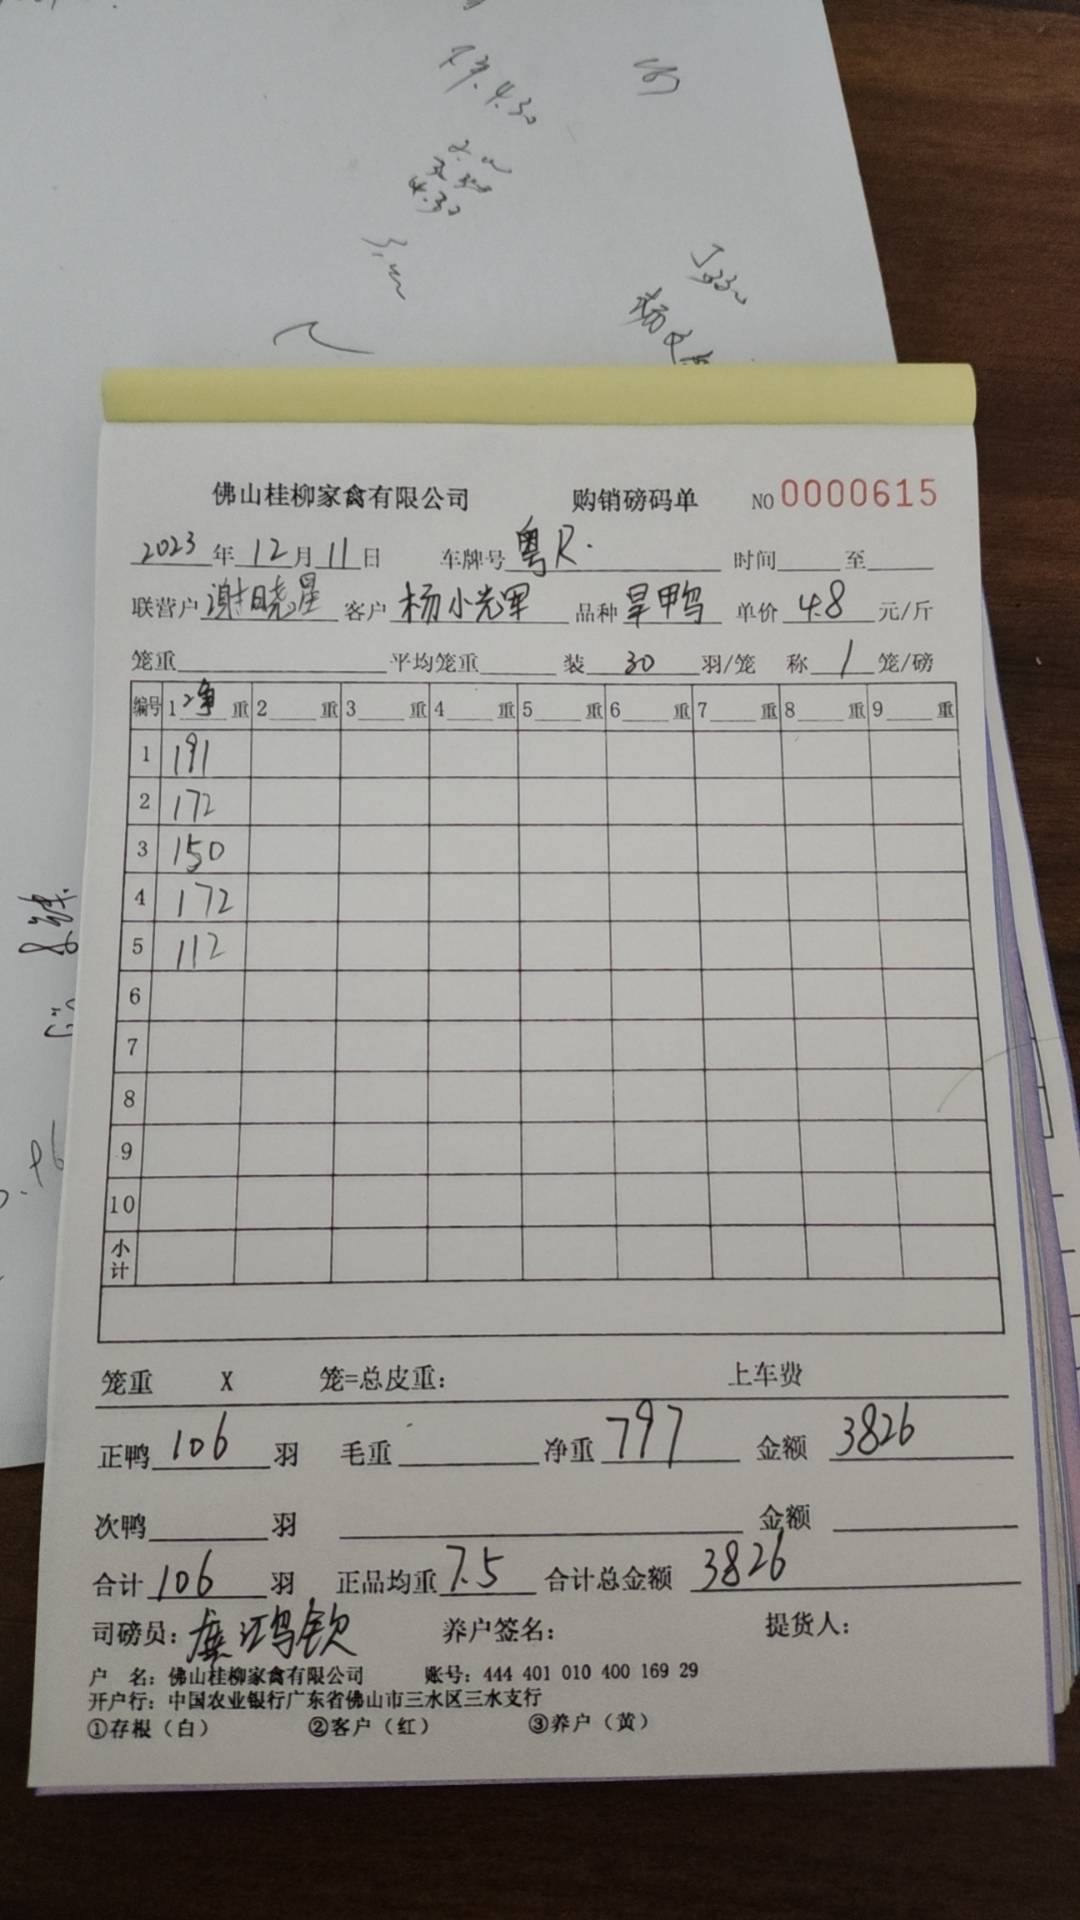 4.30
4.30
佛山桂柳家禽有限公司 购销磅码单 NO 0000615
2023年12月11日 车牌号 粤R. 时间 至
联营户 谢晓星 客户 杨小光军 品种 旱鸭 单价 4.8 元/斤
笼重 平均笼重 装 30 羽/笼 称 1 笼/磅
编号 1 净 重 2 重 3 重 4 重 5 重 6 重 7 重 8 重 9 重
1 191
2 172
3 150
4 172
5 112
6
7
8
9
10
小计
笼重 X 笼=总皮重: 上车费
正鸭 106 羽 毛重 净重 797 金额 3826
次鸭 羽 金额
合计 106 羽 正品均重 7.5 合计总金额 3826
司磅员: 养户签名: 提货人:
户 名: 佛山桂柳家禽有限公司 账号: 444 401 010 400 169 29
开户行: 中国农业银行广东省佛山市三水区三水支行
①存根（白） ②客户（红） ③养户（黄）